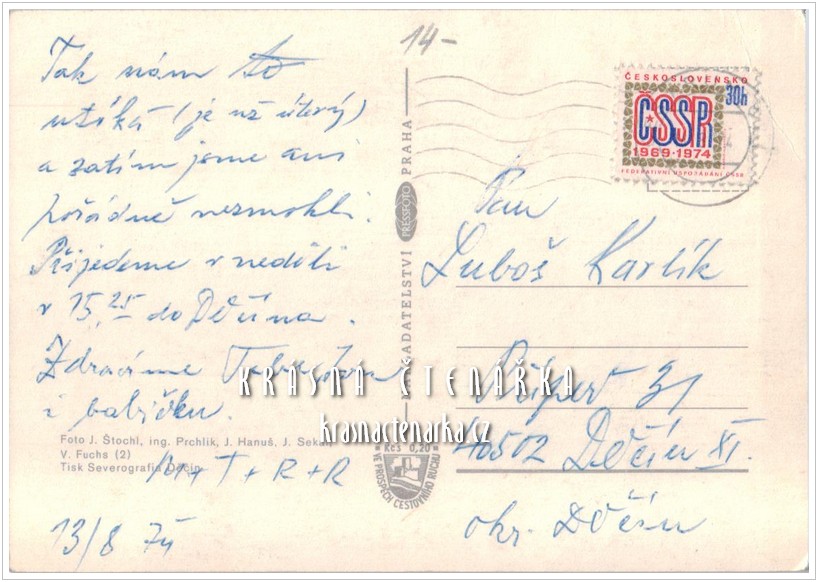 14-
Tak nám to
utíká (je už úterý)
a zatím jsme ani
pořádně nezmokli.
Přijedeme v neděli
v 15,25 do Děčína.
Zdravíme
i babičku.
M+T+R+R
13/8 74
Foto J. Štochl, ing. Prchlík, J. Hanuš, J. Sekal
V. Fuchs (2)
Tisk Severografia Děčín
NAKLADATELSTVÍ PRESSFOTO PRAHA
Kčs 0,20
VE PROSPĚCH CESTOVNÍHO RUCHU
ČESKOSLOVENSKO
30h
ČSSR
1969·1974
FEDERATIVNÍ USPOŘÁDÁNÍ ČSSR
Pan
Luboš Karlík
Přípeř 31
40502 Děčín XI.
okr. Děčín
KRÁSNÁ ČTENÁŘKA
krasnactenarka.cz